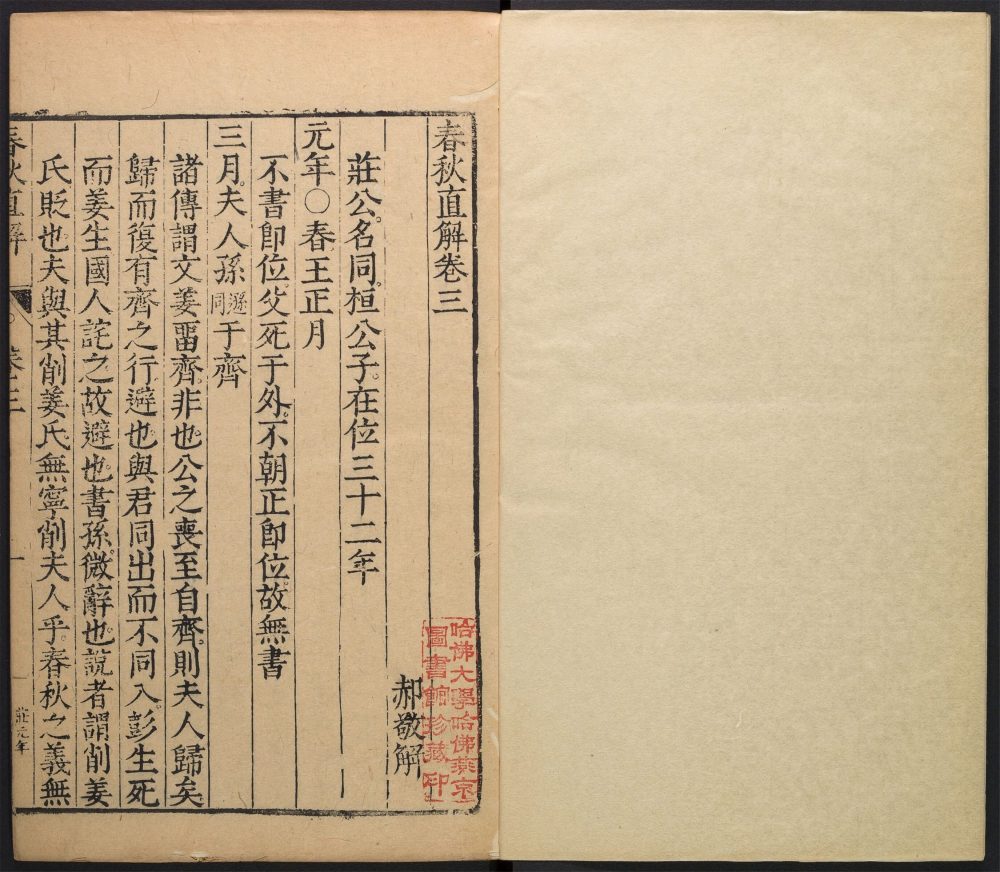 春秋直解卷三
郝敬解
莊公。名同。桓公子。在位三十二年
元年○春王正月
不書卽位。父死于外。不朝正卽位。故無書
三月。夫人孫遯同于齊
諸傳謂文姜畱齊。非也。公之喪至自齊。則夫人歸矣
歸而復有齊之行。避也。與君同出而不同入。彭生死
而姜生。國人詫之。故避也。書孫。微辭也。說者謂削姜
氏。貶也。夫與其削姜氏。無寧削夫人乎。春秋之義。無
春秋直解
卷三
一
莊元年
哈佛大學哈佛燕京
圖書館珍藏印